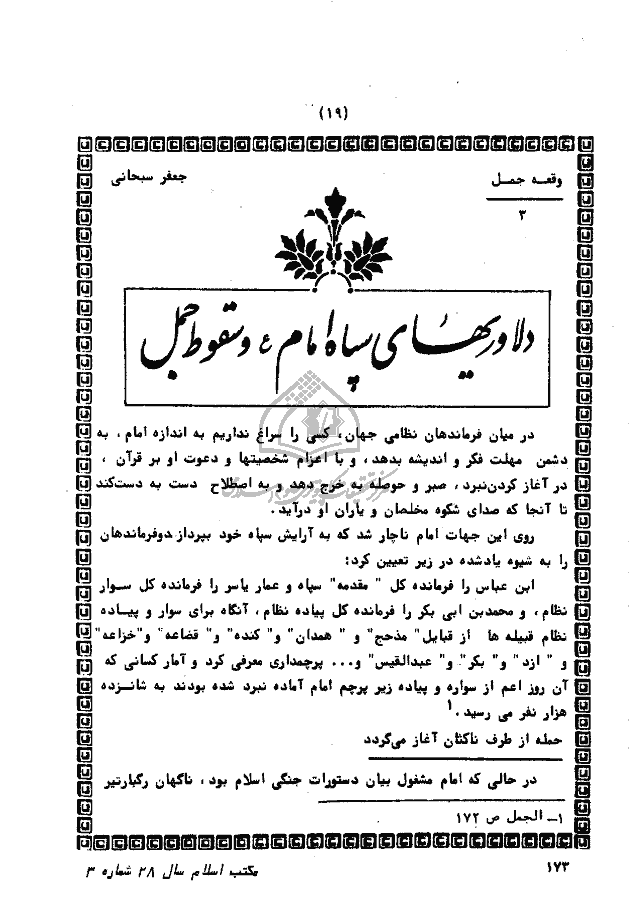 (۱۹)
وقعه جمل
جعفر سبحانی
۳
دلاوریهای سپاه امام ع و سقوط جمل
در میان فرماندهان نظامی جهان، کسی را سراغ نداریم به اندازه امام، به
دشمن مهلت فکر و اندیشه بدهد، و با اعزام شخصیتها و دعوت او بر قرآن،
در آغاز کردن نبرد، صبر و حوصله به خرج دهد و به اصطلاح دست به دست کند
تا آنجا که صدای شکوه مخلصان و یاران او درآید.
روی این جهات امام ناچار شد که به آرایش سپاه خود بپردازد و فرماندهان
را به شیوه یادشده در زیر تعیین کرد:
ابن عباس را فرمانده کل " مقدمه" سپاه و عمار یاسر را فرمانده کل سوار
نظام، و محمدبن ابی بکر را فرمانده کل پیاده نظام، آنگاه برای سوار و پیاده
نظام قبیله ها از قبایل" مذحج" و " همدان" و " کنده" و" قضاعه" و"خزاعه"
و " ازد" و" بکر" و" عبدالقیس" و... پرچمداری معرفی کرد و آمار کسانی که
آن روز اعم از سواره و پیاده زیر پرچم امام آماده نبرد شده بودند به شانزده
هزار نفر می رسید.۱
حمله از طرف ناکثان آغاز می‌گردد
در حالی که امام مشغول بیان دستورات جنگی اسلام بود، ناگهان رگبارتیر
۱ـ الجمل ص ۱۷۲
۱۷۳
مکتب اسلام سال ۲۸ شماره ۳